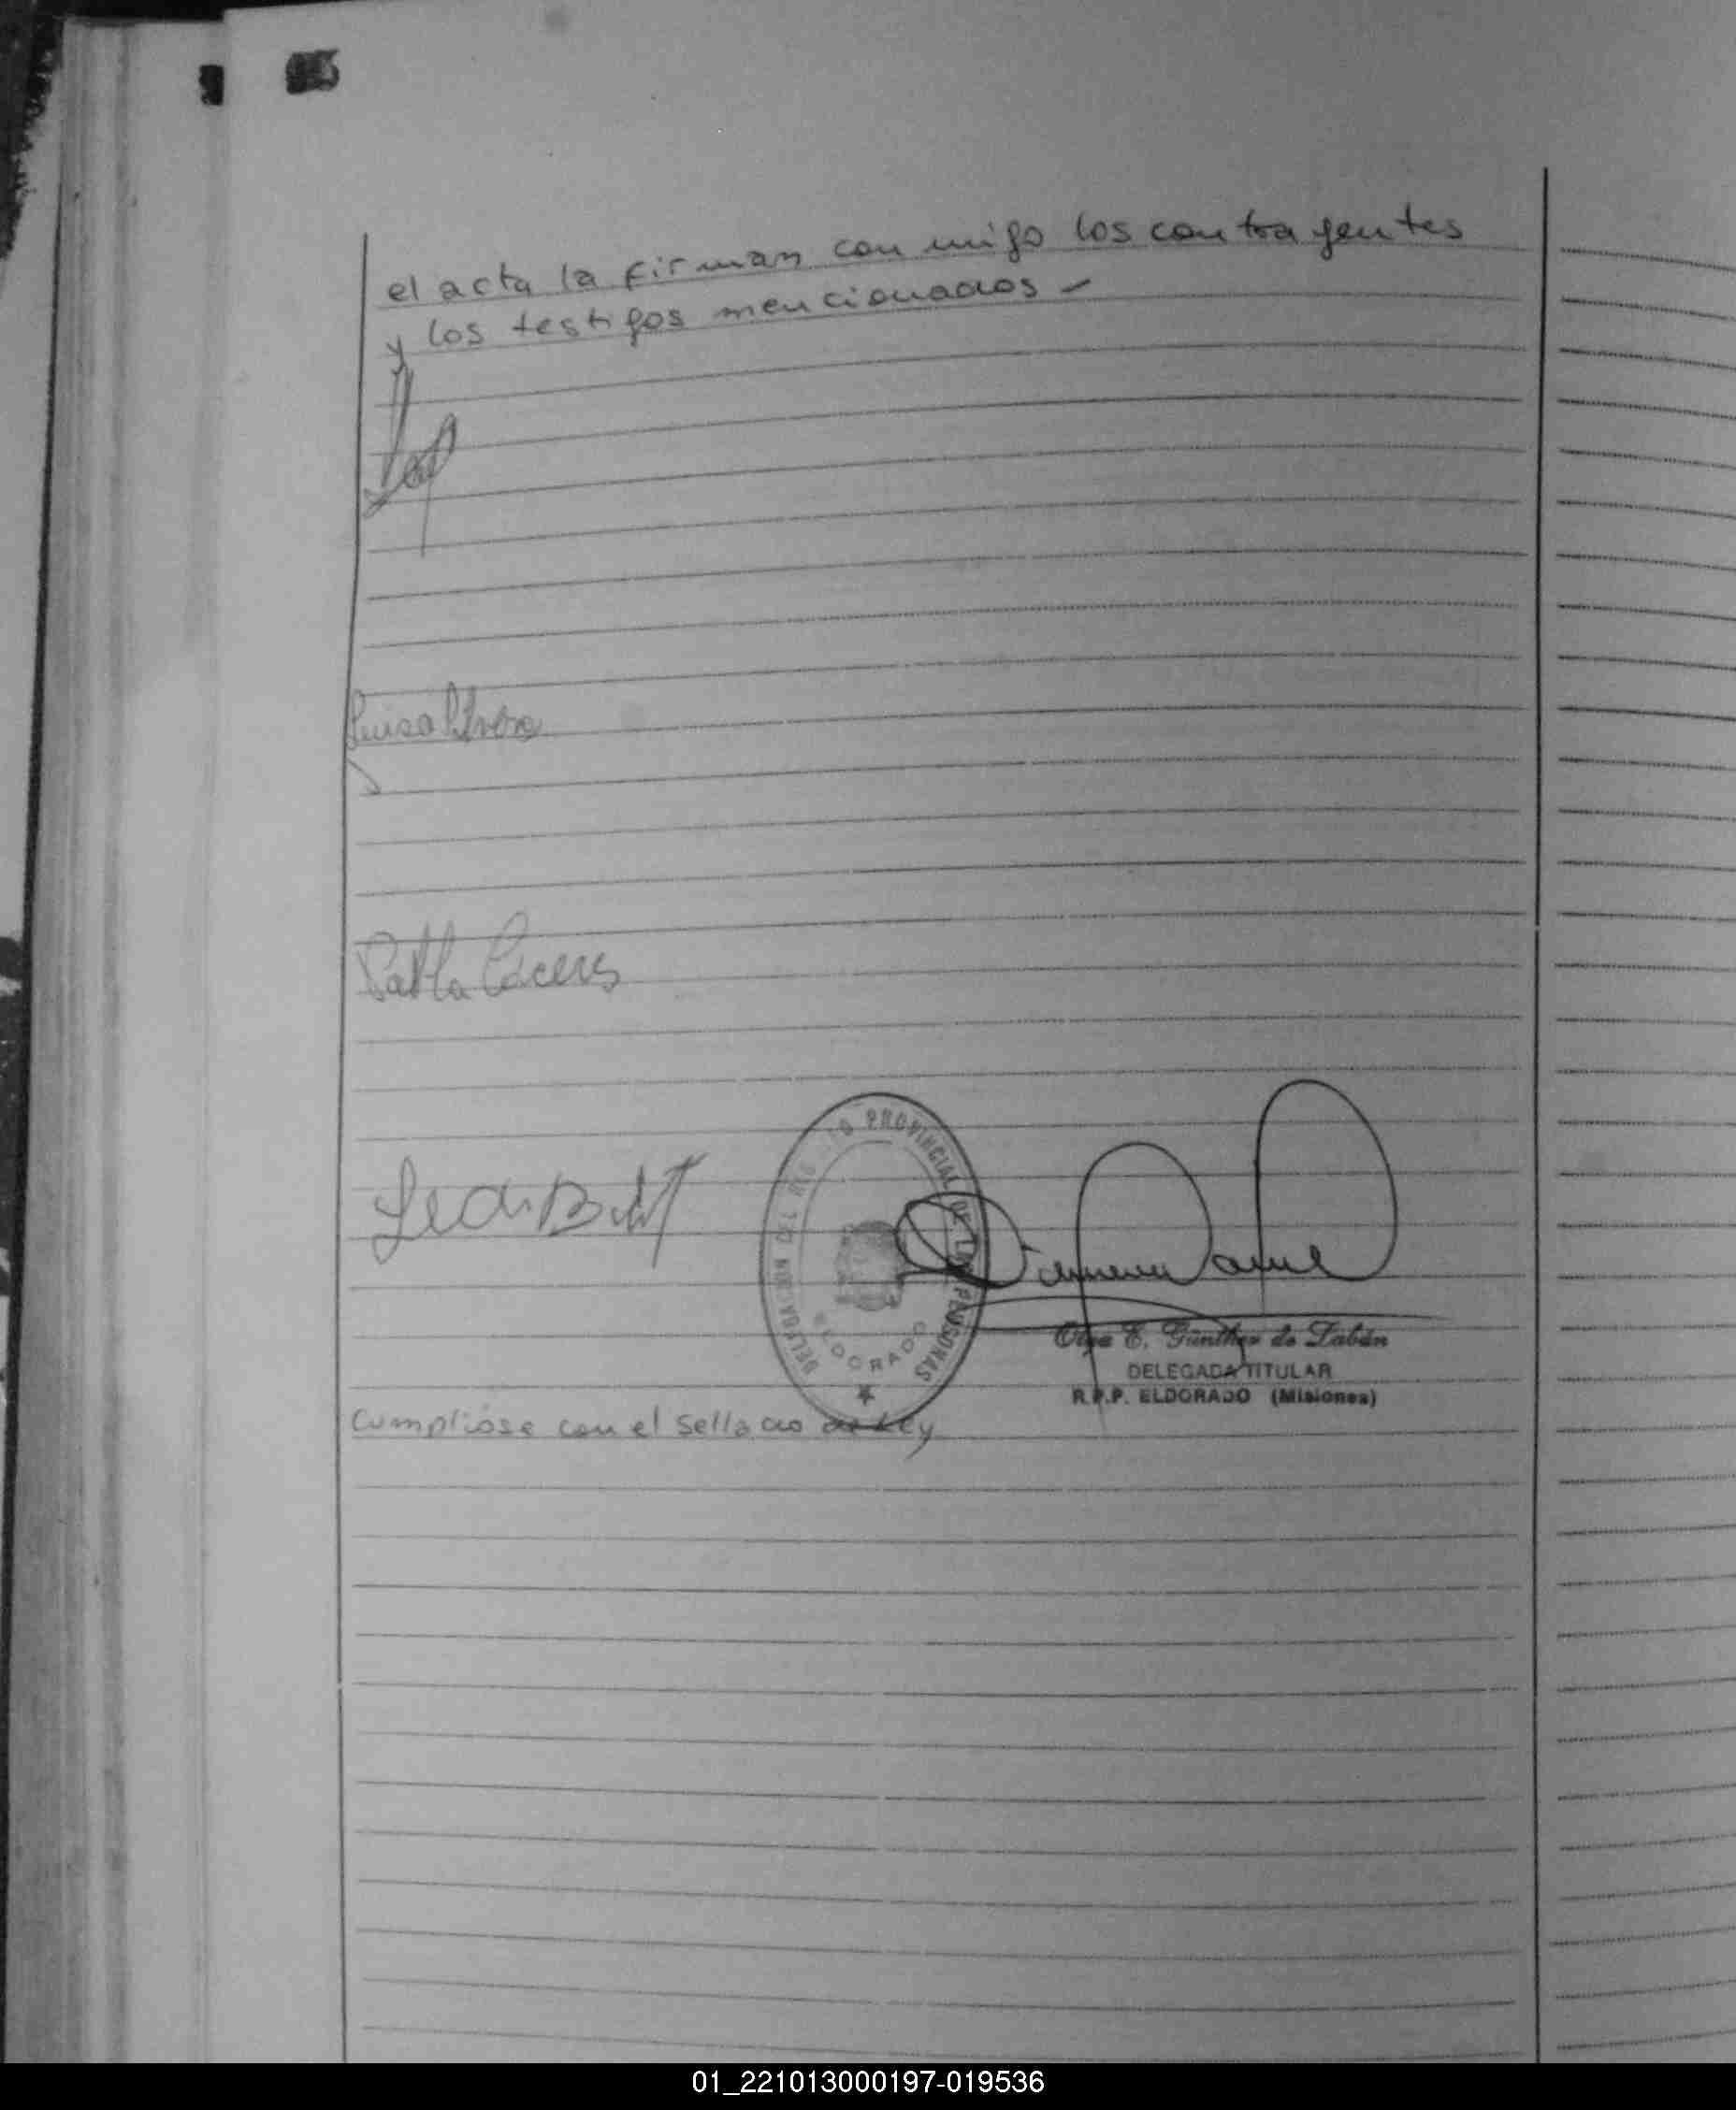 el acta la firman con migo los contra yentes
y los testigos mencionados -
Luisa
Cáceres
DELEGACION DEL REGISTRO PROVINCIAL DE LAS PERSONAS
ELDORADO
Olga E. Günther de Labán
DELEGADA TITULAR
R.P.P. ELDORADO (Misiones)
Cumpliose con el sellado de Ley
01_221013000197-019536